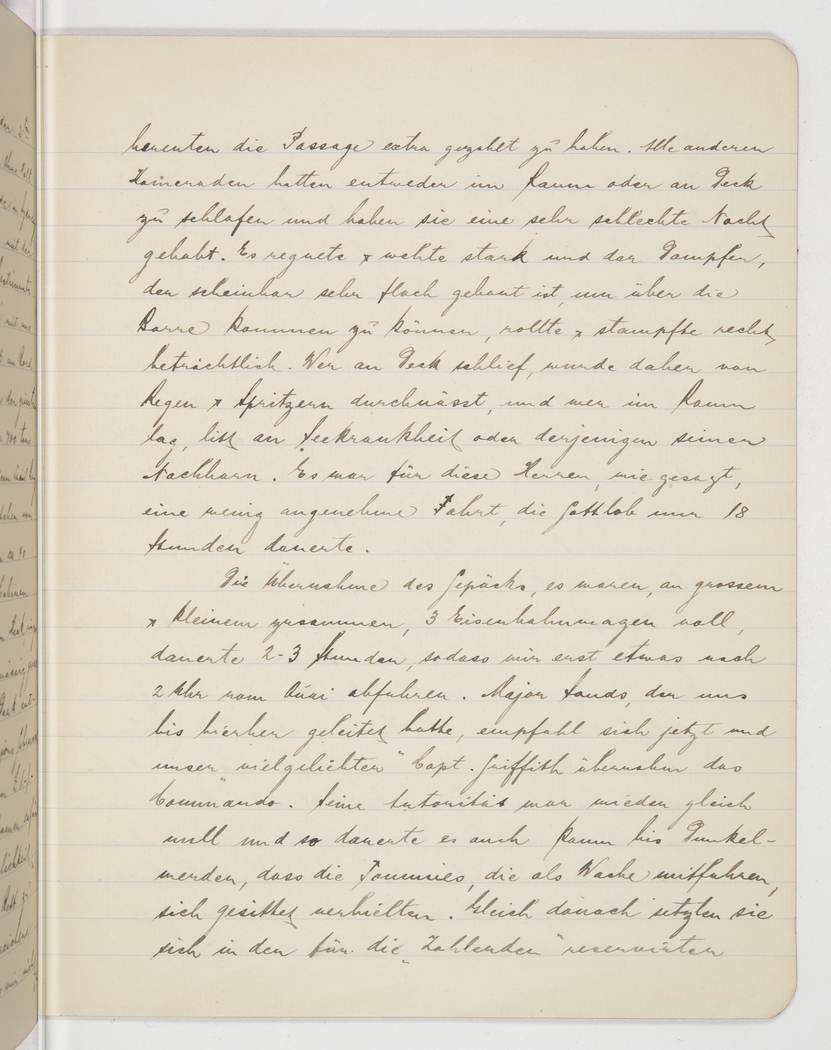 bereuten die Passage extra gezahlt zu haben. Alle anderen
Kameraden hatten entweder im Raum oder an Deck
zu schlafen und haben sie eine sehr schlechte Nacht
gehabt. Es regnete & wehte stark und der Dampfer,
der scheinbar sehr flach gebaut ist, um über die
Barre kommen zu können, rollte & stampfte recht
beträchtlich. Wer an Deck schlief, wurde daher von
Regen & Spritzern durchnässt, und wer im Raum
lag, litt an Seekrankheit oder derjenigen seiner
Nachbarn. Es war für diese Herren, wie gesagt,
eine wenig angenehme Fahrt, die Gottlob nur 18
Stunden dauerte.
Die Übernahme des Gepäcks, es waren, an grossem
& kleinem zusammen, 3 Eisenbahnwagen voll,
dauerte 2-3 Stunden, sodass wir erst etwas nach
2 Uhr vom Quai abfuhren. Major Sands, der uns
bis hierher geleitet hatte, empfahl sich jetzt und
unser "vielgeliebter" Capt. Griffith übernahm das
Commando. Seine Autorität war wieder gleich
null und so dauerte es auch kaum bis Dunkel-
werden, dass die Tommies, die als Wache mitfuhren,
sich gesittet verhielten. Gleich danach setzten sie
sich in den für die "Zahlenden" reservirten